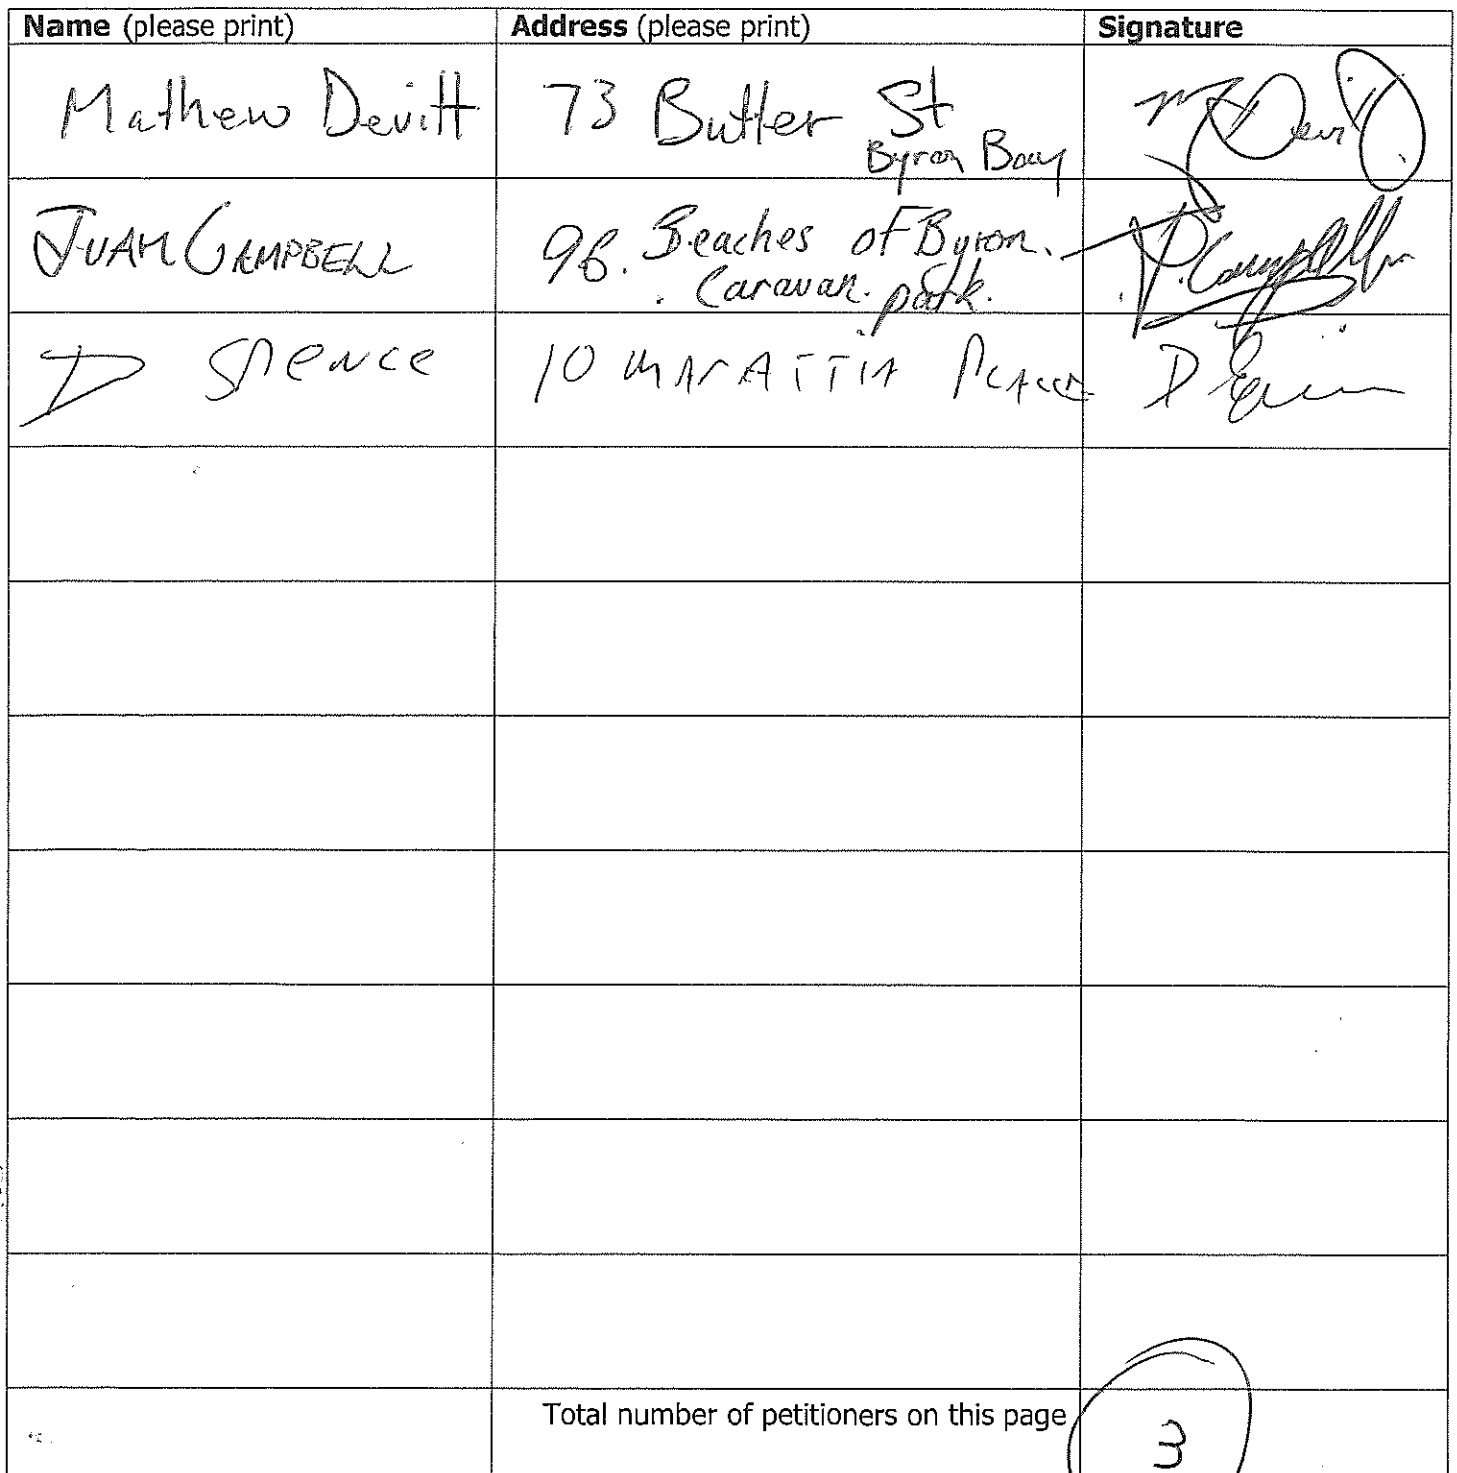 Name (please print) Address (please print) Signature
Mathew Devitt 73 Butler St
Byron Bay
JUAN CAMPBELL 96. Beaches of Byron.
Caravan. park.
D SPENCE 10 MARATTIA PLACE
Total number of petitioners on this page 3